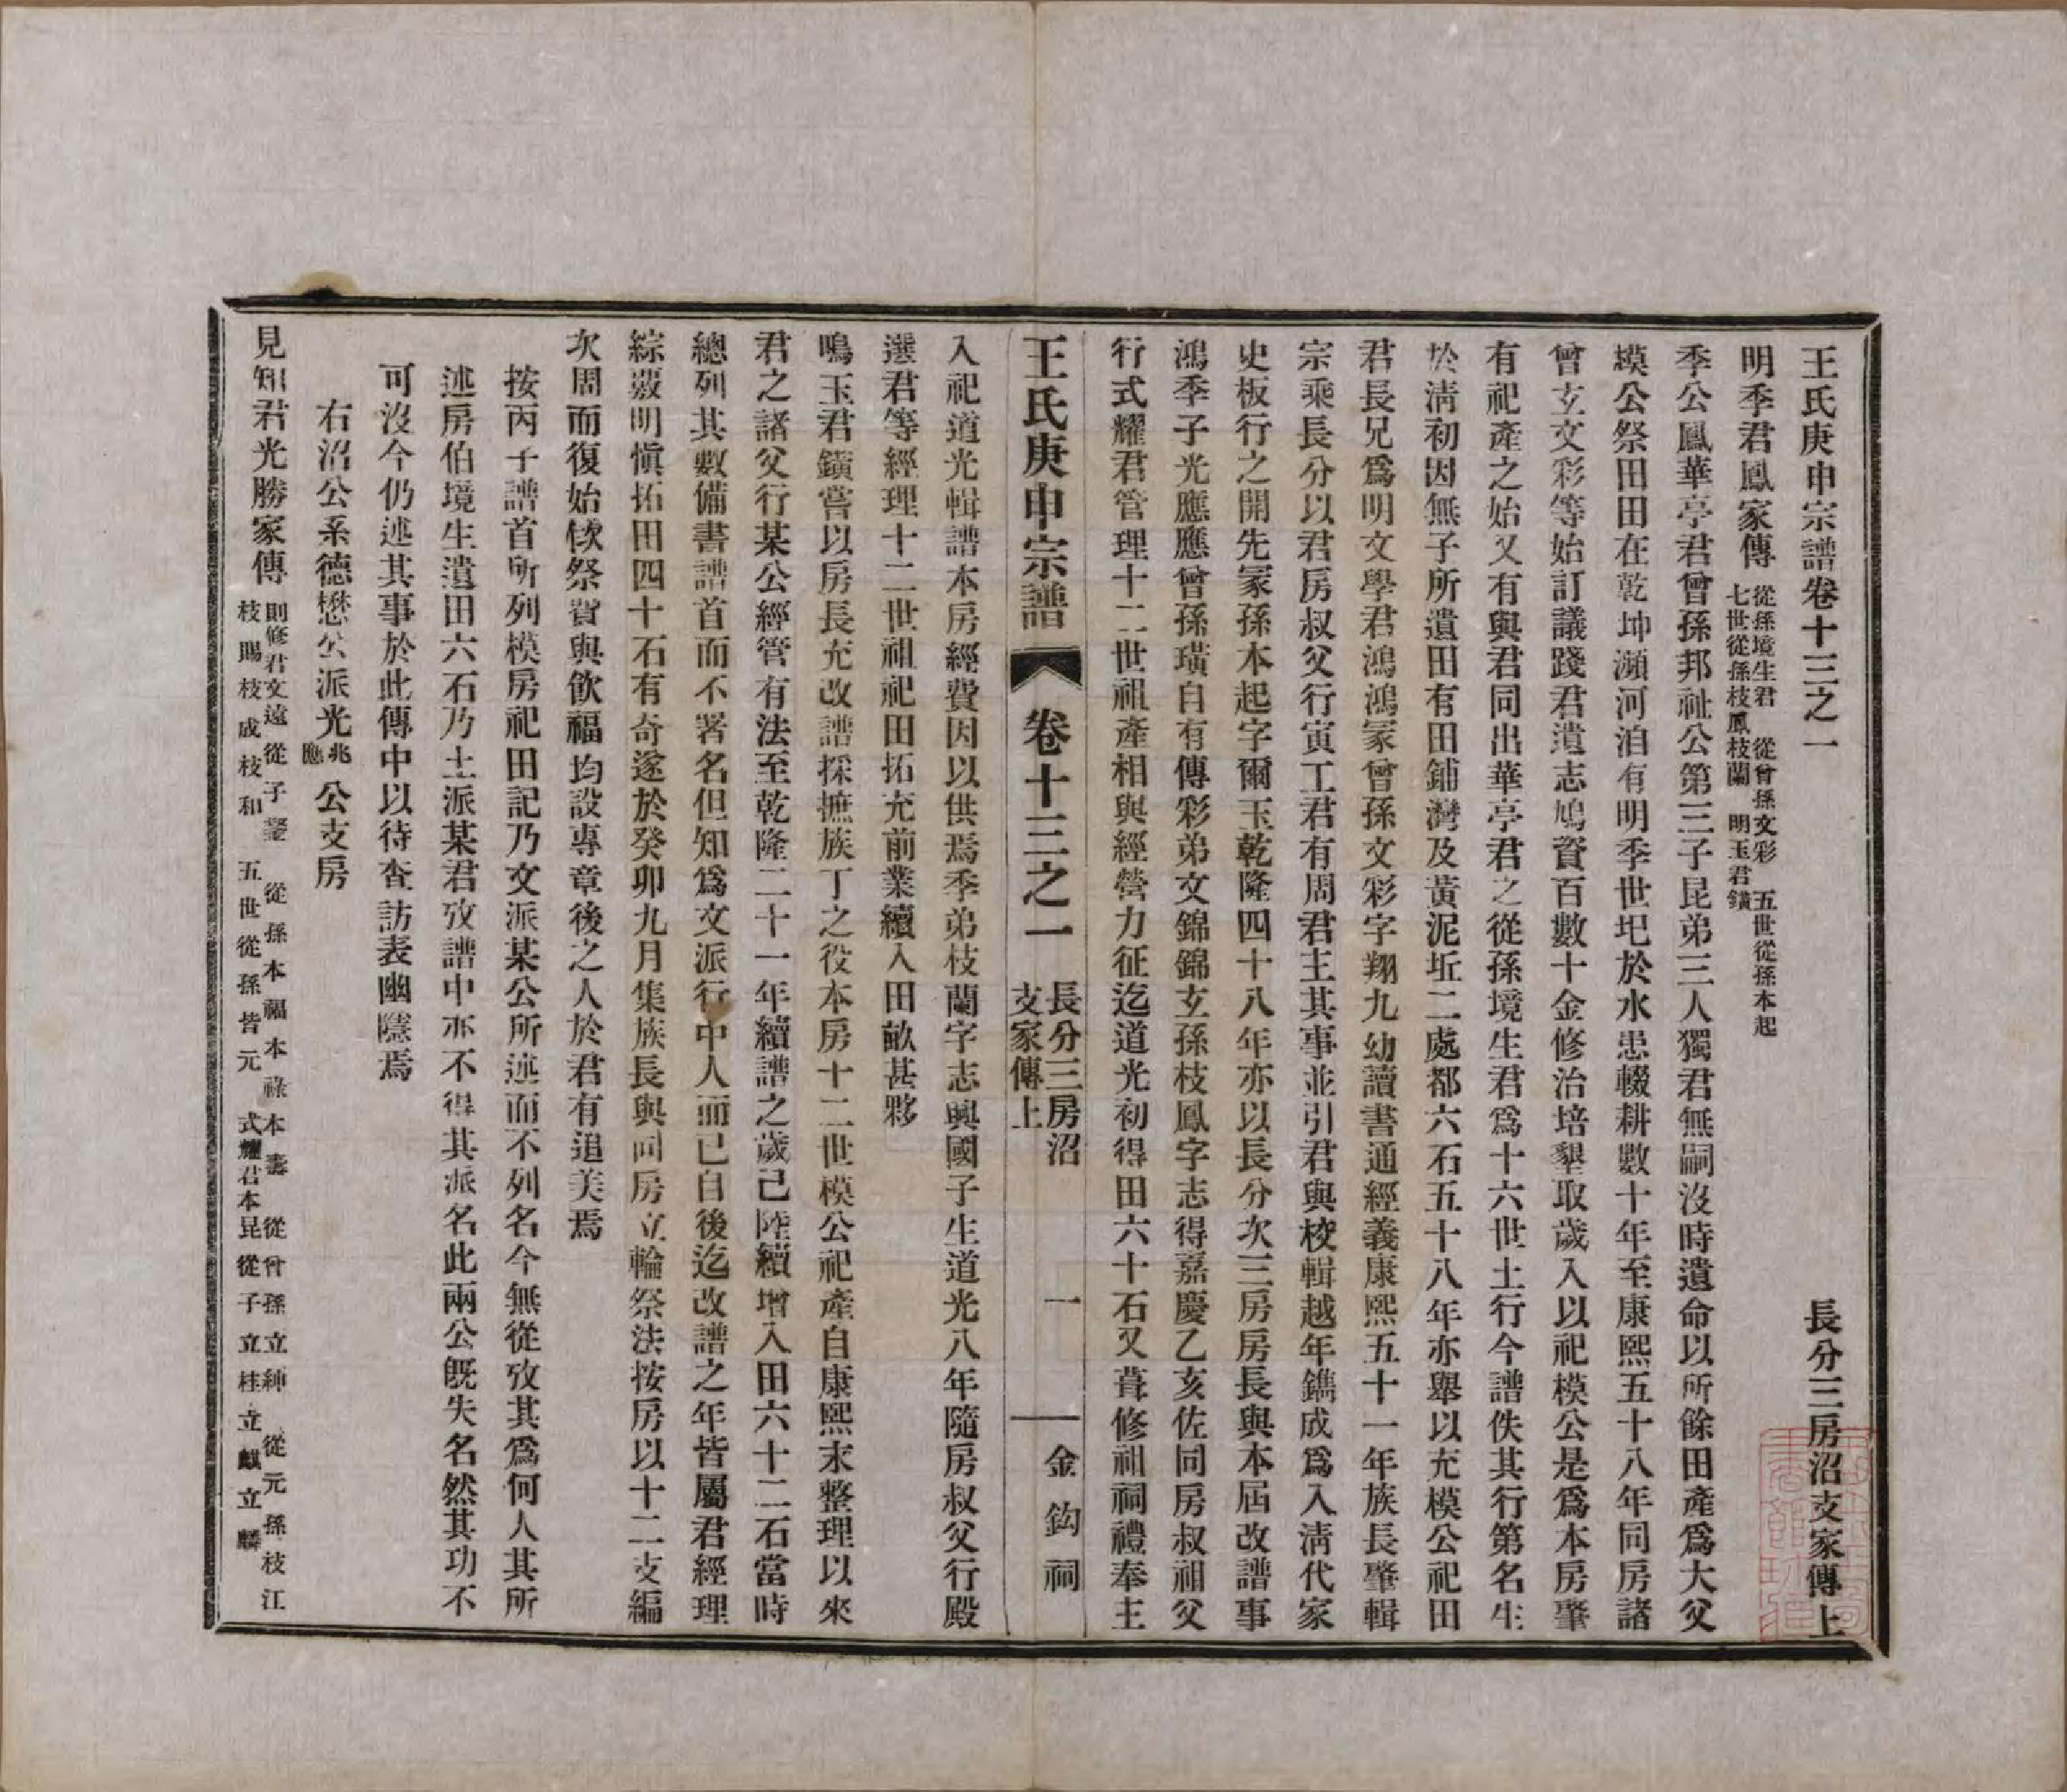 王氏庚申宗譜卷十三之一　長分三房沼支家傳上
明季君鳳家傳　從孫境生君　從曾孫文彩　五世從孫本起
七世從孫枝鳳枝蘭　明玉君鐄
季公鳳華亭君曾孫邦祉公第三子昆弟三人獨君無嗣沒時遺命以所餘田產爲大父
模公祭田田在乾坤瀕河洎有明季世圯於水患輟耕數十年至康熙五十八年同房諸
曾玄文彩等始訂議踐君遺志鳩資百數十金修治培墾取歲入以祀模公是爲本房肇
有祀產之始又有與君同出華亭君之從孫境生君爲十六世土行今譜佚其行第名生
於淸初因無子所遺田有田鋪灣及黃泥坵二處都六石五十八年亦舉以充模公祀田
君長兄爲明文學君鴻鴻冢曾孫文彩字翔九幼讀書通經義康熙五十一年族長肇輯
宗乘長分以君房叔父行寅工君有周君主其事並引君與校輯越年鐫成爲入淸代家
史板行之開先冢孫本起字爾玉乾隆四十八年亦以長分次三房房長與本屆改譜事
鴻季子光應應曾孫璜自有傳彩弟文錦錦玄孫枝鳳字志得嘉慶乙亥佐同房叔祖父
行式耀君管理十二世祖產相與經營力征迄道光初得田六十石又葺修祖祠禮奉主
王氏庚申宗譜　卷十三之一　長分三房沼
支家傳上　一　金鈎祠
入祀道光輯譜本房經費因以供焉季弟枝蘭字志興國子生道光八年隨房叔父行殿
選君等經理十二世祖祀田拓充前業續入田畝甚夥
鳴玉君鐄嘗以房長充改譜採摭族丁之役本房十二世模公祀產自康熙末整理以來
君之諸父行某公經管有法至乾隆二十一年續譜之歲己陸續增入田六十二石當時
總列其數備書譜首而不署名但知爲文派行中人而已自後迄改譜之年皆屬君經理
綜覈明愼拓田四十石有奇遂於癸卯九月集族長與同房立輪祭法按房以十二支編
次周而復始餘祭費與飮福均設專章後之人於君有追美焉
按丙子譜首所列模房祀田記乃文派某公所述而不列名今無從攷其爲何人其所
述房伯境生遺田六石乃土派某君攷譜中亦不得其派名此兩公旣失名然其功不
可沒今仍述其事於此傳中以待查訪表幽隱焉
右沼公系德懋公派光兆
應公支房
見知君光勝家傳　則修君文遠從子鋆　從孫本福本祿本壽　從曾孫立紳　從元孫枝江
枝賜枝成枝和　五世從孫皆元　式耀君本昆從子立桂立麒立麟